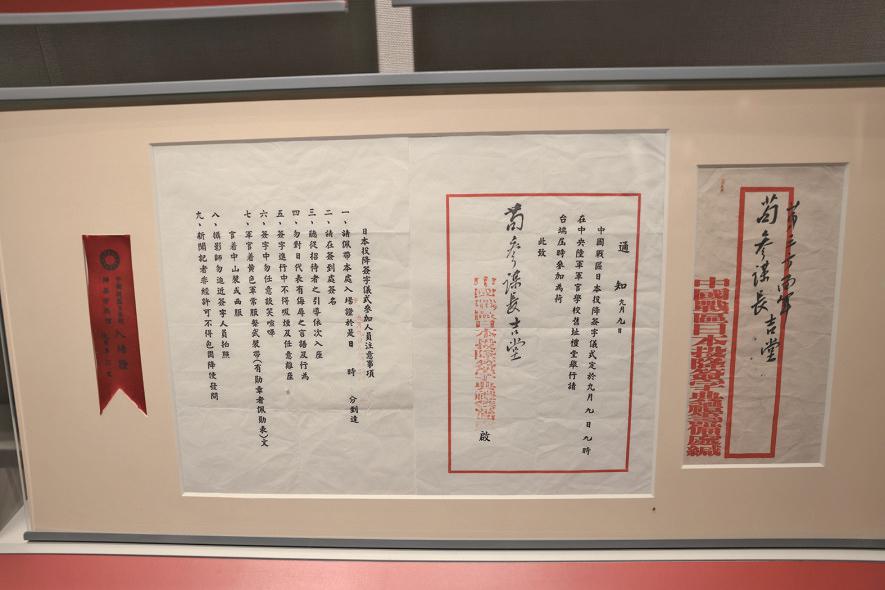 第三方面軍
苟參謀長 吉堂
中國戰區日本投降簽字典禮籌備處緘
通 知 九月九日
中國戰區日本投降簽字儀式定於九月九日九時
在中央陸軍軍官學校舊址禮堂舉行請
台端屆時參加為荷
此致
苟參謀長吉堂
中國戰區日本投降簽字典禮籌備處 啟
日本投降簽字儀式參加人員注意事項
一、請佩帶本處入場證於是日 時 分到達
二、請在簽到處簽名
三、聽從招待者之引導依次入座
四、勿對日代表有侮辱之言語及行為
五、簽字進行中不得吸煙及任意離座
六、簽字中勿任意談笑喧嘩
七、軍官着黃色軍常服整武裝帶(有勛章者佩勛表)文
官着中山裝或西服
八、攝影師勿迫近簽字人員拍照
九、新聞記者非經許可不得包圍降使發問
入場證